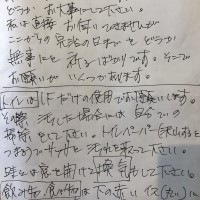 どうか お大事にして下さい。
私は直接 お伺いできませんが
ここからの 生活の日までを どうか
無事にを 祈るばかりです。そこで
お願いが いくつかあります。
トイレは 1Fだけの使用でお願いします。
その際 汚した場合には 自分での
掃除をして下さい。トイレペーパー(沢山流すと
つまる)でサッと 汚れを取って下さい。
時々は窓を開けて換気もして下さい。
飲み物、食べ物は 下の赤い イス(丸い)に